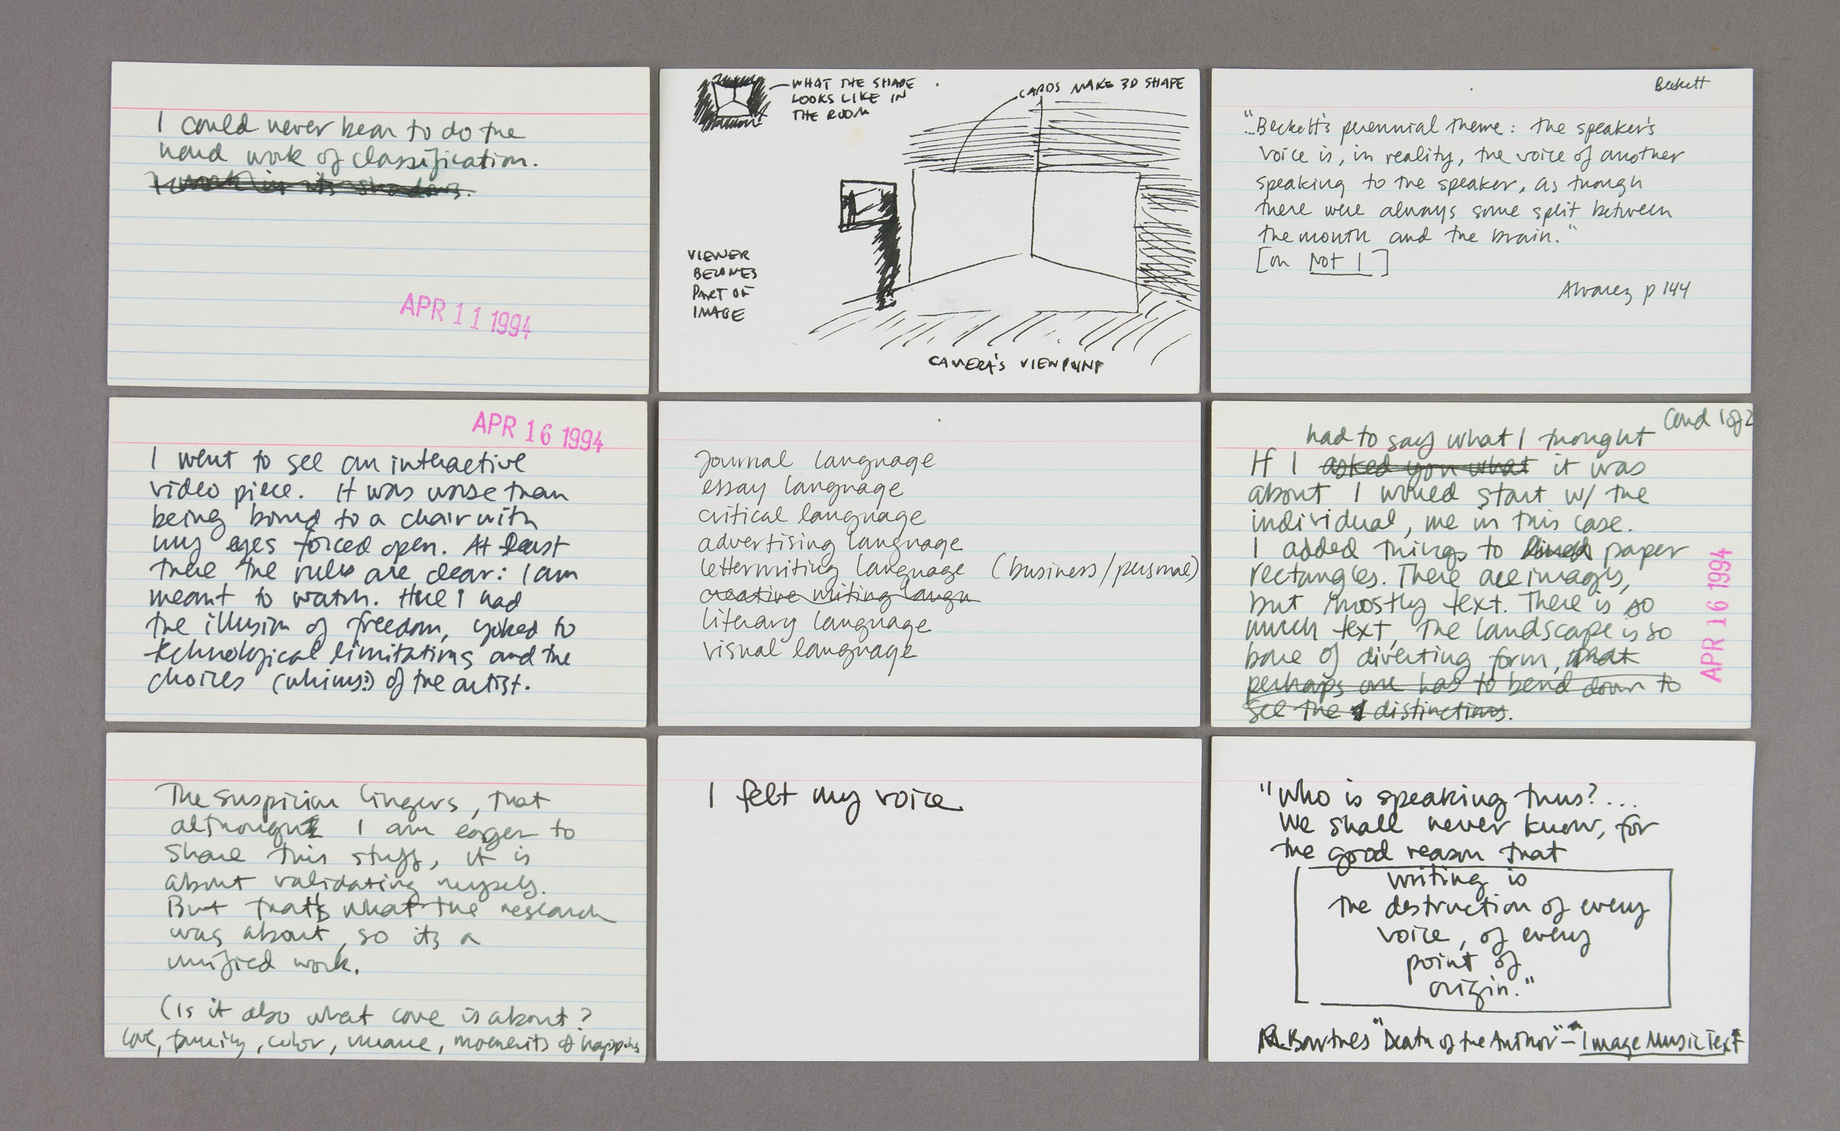 I could never bear to do the
hard work of classification.
I work in its shadows.
APR 11 1994
WHAT THE SHAPE
LOOKS LIKE IN
THE ROOM
CARDS MAKE 3D SHAPE
VIEWER
BECOMES
PART OF
IMAGE
CAMERA'S VIEWPOINT
Beckett
"Beckett's perennial theme: the speaker's
voice is, in reality, the voice of another
speaking to the speaker, as though
there were always some split between
the mouth and the brain."
[on Not I]
Alvarez p 144
APR 16 1994
I went to see an interactive
video piece. It was worse than
being bound to a chair with
my eyes forced open. At least
there the rules are clear: I am
meant to watch. Here I had
the illusion of freedom, yoked to
technological limitations and the
choices (whims?) of the artist.
Journal language
essay language
critical language
advertising language
letterwriting language (business/personal)
creative writing langu
literary language
visual language
Card 1 of 2
had to say what I thought
If I asked you what it was
about I would start w/ the
individual, me in this case.
I added things to lined paper
rectangles. There are images,
but mostly text. There is so
much text, The landscape is so
bare of diverting form, that
perhaps one has to bend down to
see the distinctions.
APR 16 1994
The suspicion lingers, that
although I am eager to
share this stuff, it is
about validating myself.
But that's what the research
was about, so it's a
unified work.
(Is it also what love is about?
love, family, color, moments of happiness
I felt my voice
"Who is speaking thus?...
We shall never know, for
the good reason that
writing is
the destruction of every
voice, of every
point of
origin."
R. Barthes "Death of the Author" - Image Music Text